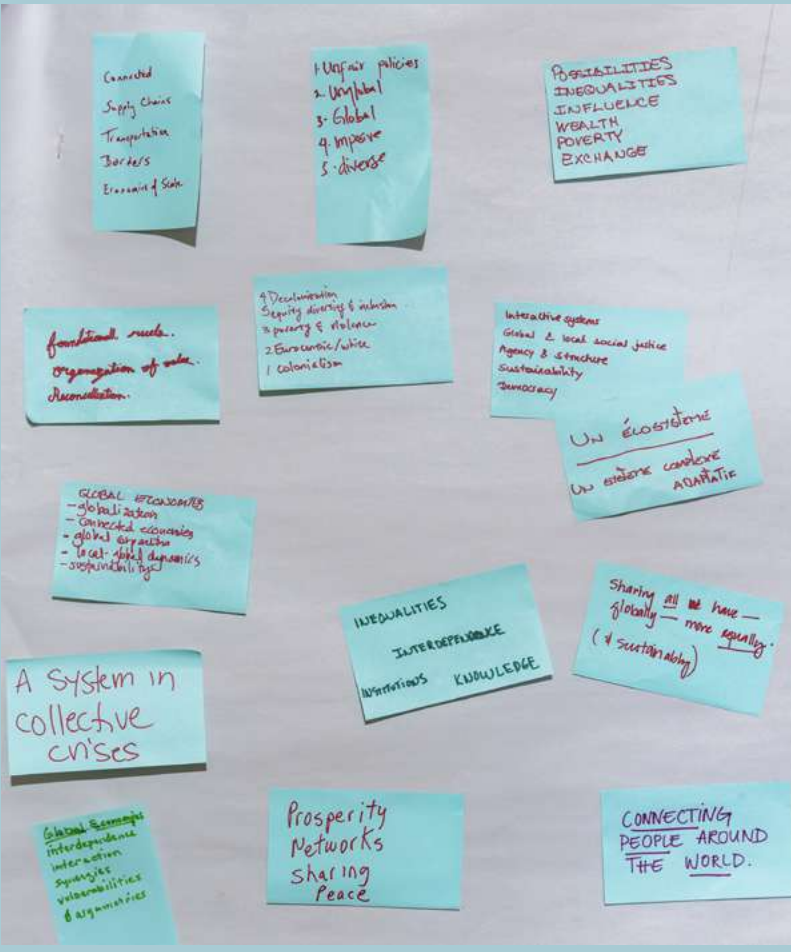 Connected
Supply Chains
Transportation
Borders
Economies of Scale
1. Unfair policies
2. Unglobal
3. Global
4.
5. diverse
POSSIBILITIES
INEQUALITIES
INFLUENCE
WEALTH
POVERTY
EXCHANGE
foundational needs.
organization of value.
Reconciliation.
4 Decolonization
5 equity diversity & inclusion
3 poverty & violence
2 Eurocentric/white
1 colonialism
Interactive systems
Global & local social justice
Agency & structure
Sustainability
Democracy
UN
UN COMPLEXE
GLOBAL ECONOMIES
- globalization
- connected economies
- global
- local-global dynamics
- sustainability
INEQUALITIES
INTERDEPENDENCE
INSTITUTIONS KNOWLEDGE
Sharing all we have —
globally — more equally.
(& sustainably)
A System in
collective
crises
Global Economies
interdependence
interaction
synergies
vulnerabilities
& asymmetries
Prosperity
Networks
Sharing
Peace
CONNECTING
PEOPLE AROUND
THE WORLD.